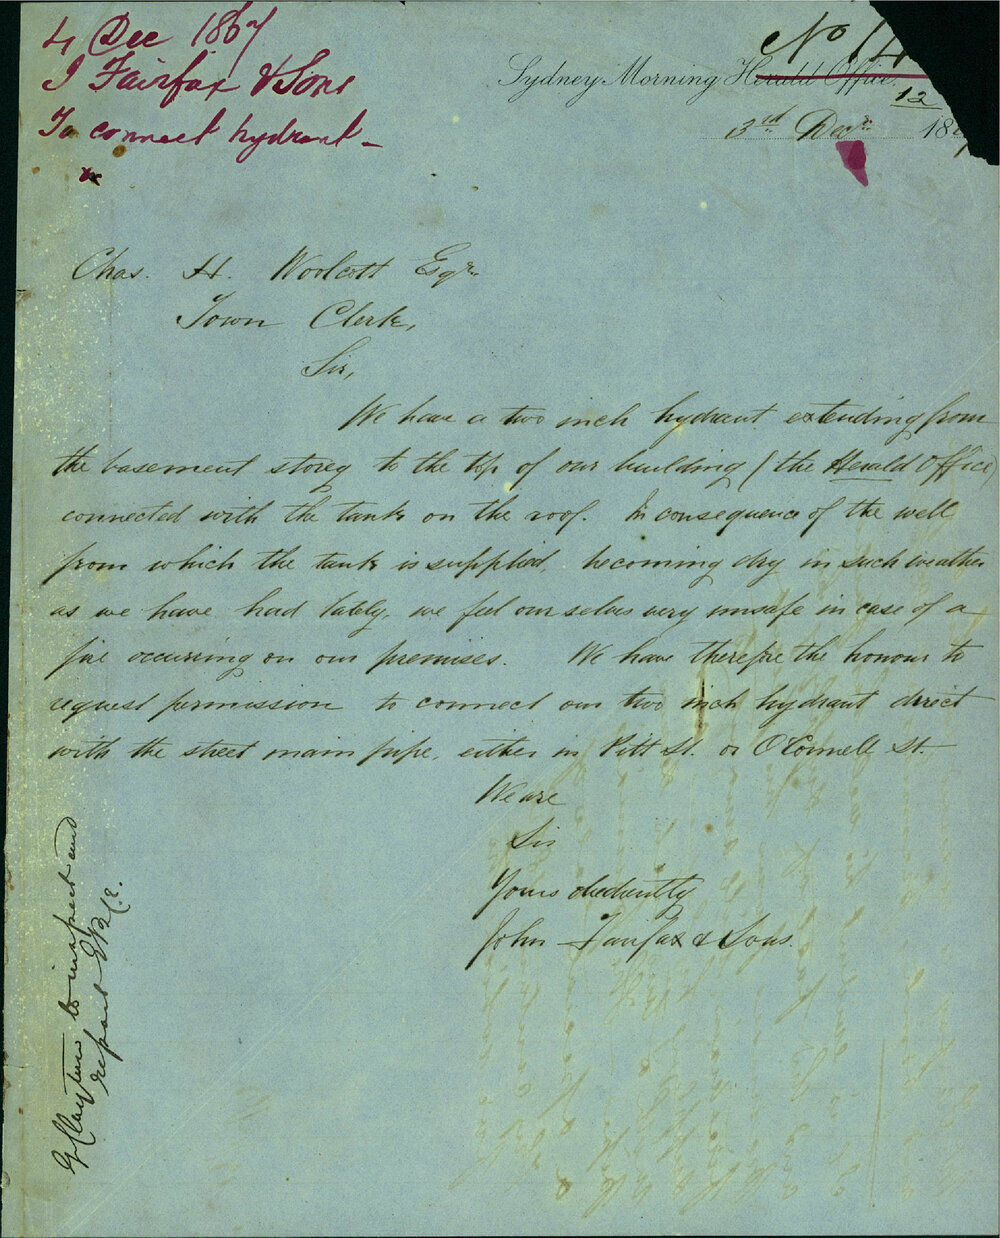 4 Dec 1867
J Fairfax & Sons
To connect hydrant -
No 14
Sydney Morning Herald Office,
12
3rd Decr. 186
Chas. H. Woolcott Esqre.
Town Clerk,
Sir,
We have a two inch hydrant extending from
the basement storey to the top of our building (the Herald Office)
connected with the tank on the roof. In consequence of the well
from which the tank is supplied, becoming dry in such weather
as we have had lately, we feel ourselves very unsafe in case of a
fire occurring on our premises. We have therefore the honour to
request permission to connect our two inch hydrant direct
with the street main pipe, either in Pitt St. or O'Connell St.
We are
Sir
Yours obediently
John Fairfax & Sons.
to inspect and
report